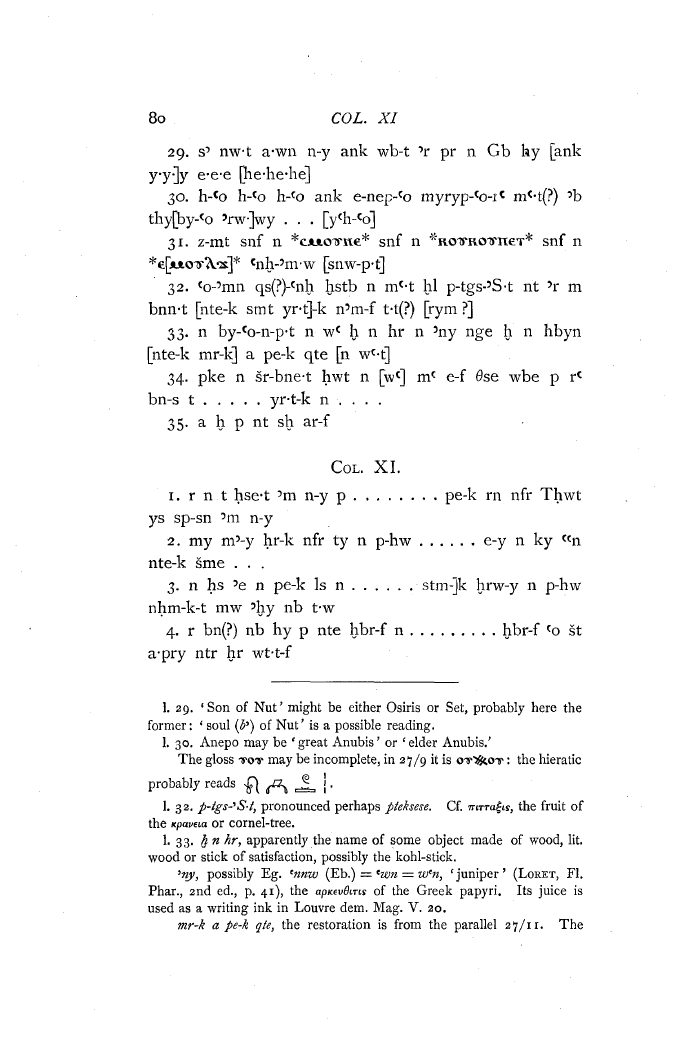 80 COL. XI
29. sʾ nw·t a·wn n-y ank wb-t ʾr pr n Gb ḥy [ank
y·y·]y e·e·e [he·he·he]
30. h-ʿo h-ʿo h-ʿo ank e-nep-ʿo myryp-ʿo-1ʿ mʿ·t(?) ʾb
thy[by-ʿo ʾrw·]wy . . . [yʿh-ʿo]
31. z-mt snf n *ⲥⲙⲟⲩⲛⲉ* snf n *ⲕⲟⲩⲕⲟⲩⲡⲉⲧ* snf n
*ⲉ[ⲙⲟⲩⲗⲁϫ]* ʿnḫ-ʾm·w [snw-p·t]
32. ʿo-ʾmn qs(?)-ʿnḫ ḫstb n mʿ·t ḥl p-tgs-ʾS·t nt ʾr m
bnn·t [nte-k smt yr·t]-k nʾm-f t·t(?) [rym ?]
33. n by-ʿo-n-p·t n wʿ ẖ n hr n ʾny nge ẖ n hbyn
[nte-k mr-k] a pe-k qte [n wʿ·t]
34. pke n šr-bne·t ḥwt n [wʿ] mʿ e-f θse wbe p rʿ
bn-s t . . . . . yr·t-k n . . . .
35. a ḥ p nt sẖ ar-f
COL. XI.
1. r n t ḥse·t ʾm n-y p . . . . . . . . pe-k rn nfr Tḥwt
ys sp-sn ʾm n-y
2. my mʾ-y ḥr-k nfr ty n p-hw . . . . . . e-y n ky ʿʿn
nte-k šme . . .
3. n ḥs ʾe n pe-k ls n . . . . . . stm-]k ḫrw-y n p-hw
nḥm-k-t mw ʾḫy nb t·w
4. r bn(?) nb hy p nte ḫbr-f n . . . . . . . . . ḫbr-f ʿo št
a·pry ntr ḫr wt·t-f
l. 29. ‘Son of Nut’ might be either Osiris or Set, probably here the
former: ‘soul (bʾ) of Nut’ is a possible reading.
l. 30. Anepo may be ‘great Anubis’ or ‘elder Anubis.’
The gloss ⲧⲟⲩ may be incomplete, in 27/9 it is : the hieratic
probably reads
l. 32. p-tgs-ʾS·t, pronounced perhaps pteksese. Cf. πιτταξις, the fruit of
the κρανεια or cornel-tree.
l. 33. ẖ n hr, apparently the name of some object made of wood, lit.
wood or stick of satisfaction, possibly the kohl-stick.
ʾny, possibly Eg. ʿnnw (Eb.) = ʿwn = wʿn, ‘juniper’ (LORET, Fl.
Phar., 2nd ed., p. 41), the αρκευθιτις of the Greek papyri. Its juice is
used as a writing ink in Louvre dem. Mag. V. 20.
mr-k a pe-k qte, the restoration is from the parallel 27/11. The